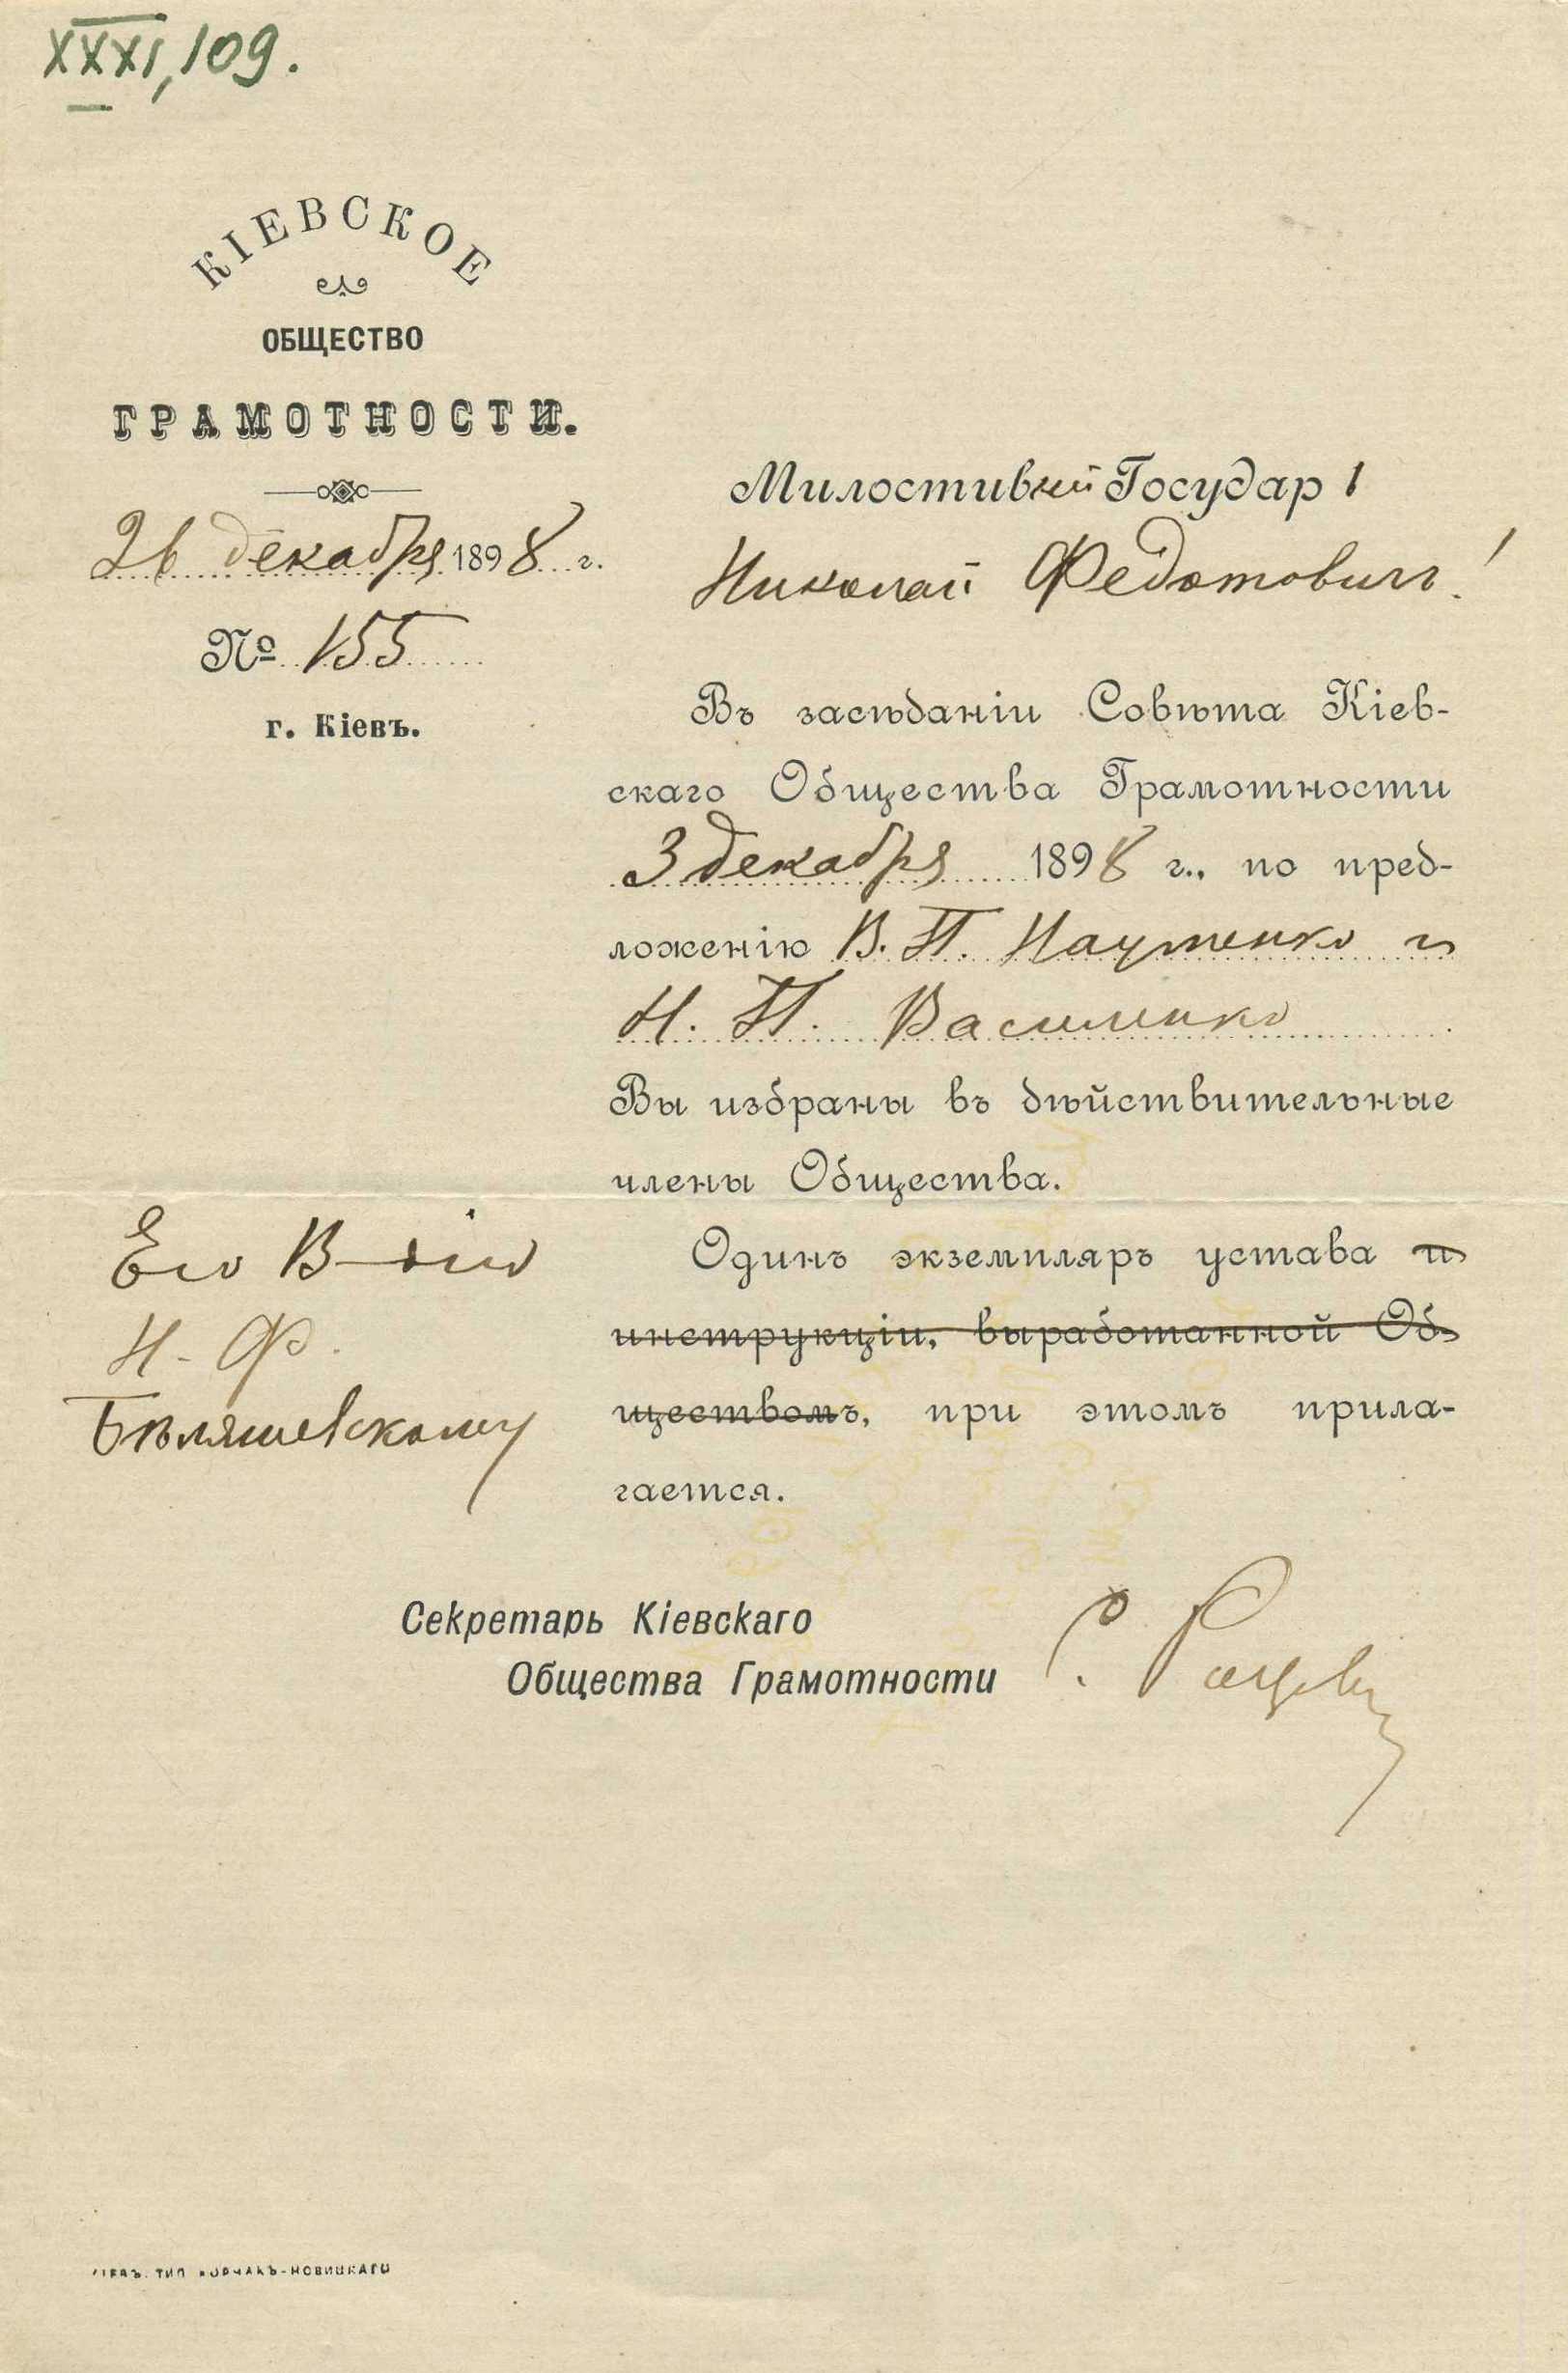 XXXI, 109.
КІЕВСКОЕ
ОБЩЕСТВО
ГРАМОТНОСТИ.
26 декабря 1898 г.
№ 155
г. Кіевъ.
Милостивый Государ
Николай Федотовичъ!
Въ засѣданіи Совѣта Кіев-
скаго Общества Грамотности
3 декабря 1898 г., по пред-
ложенію В. П. Науменко и
Н. П. Василенко
Вы избраны въ дѣйствительные
члены Общества.
Одинъ экземпляръ устава и
инструкціи, выработанной Об-
ществомъ, при этомъ прила-
гается.
Его В-дію
Н. Ф.
Бѣляшевскому
Секретарь Кіевскаго
Общества Грамотности
КІЕВЪ. ТИП КОРЧАКЪ-НОВИЦКАГО